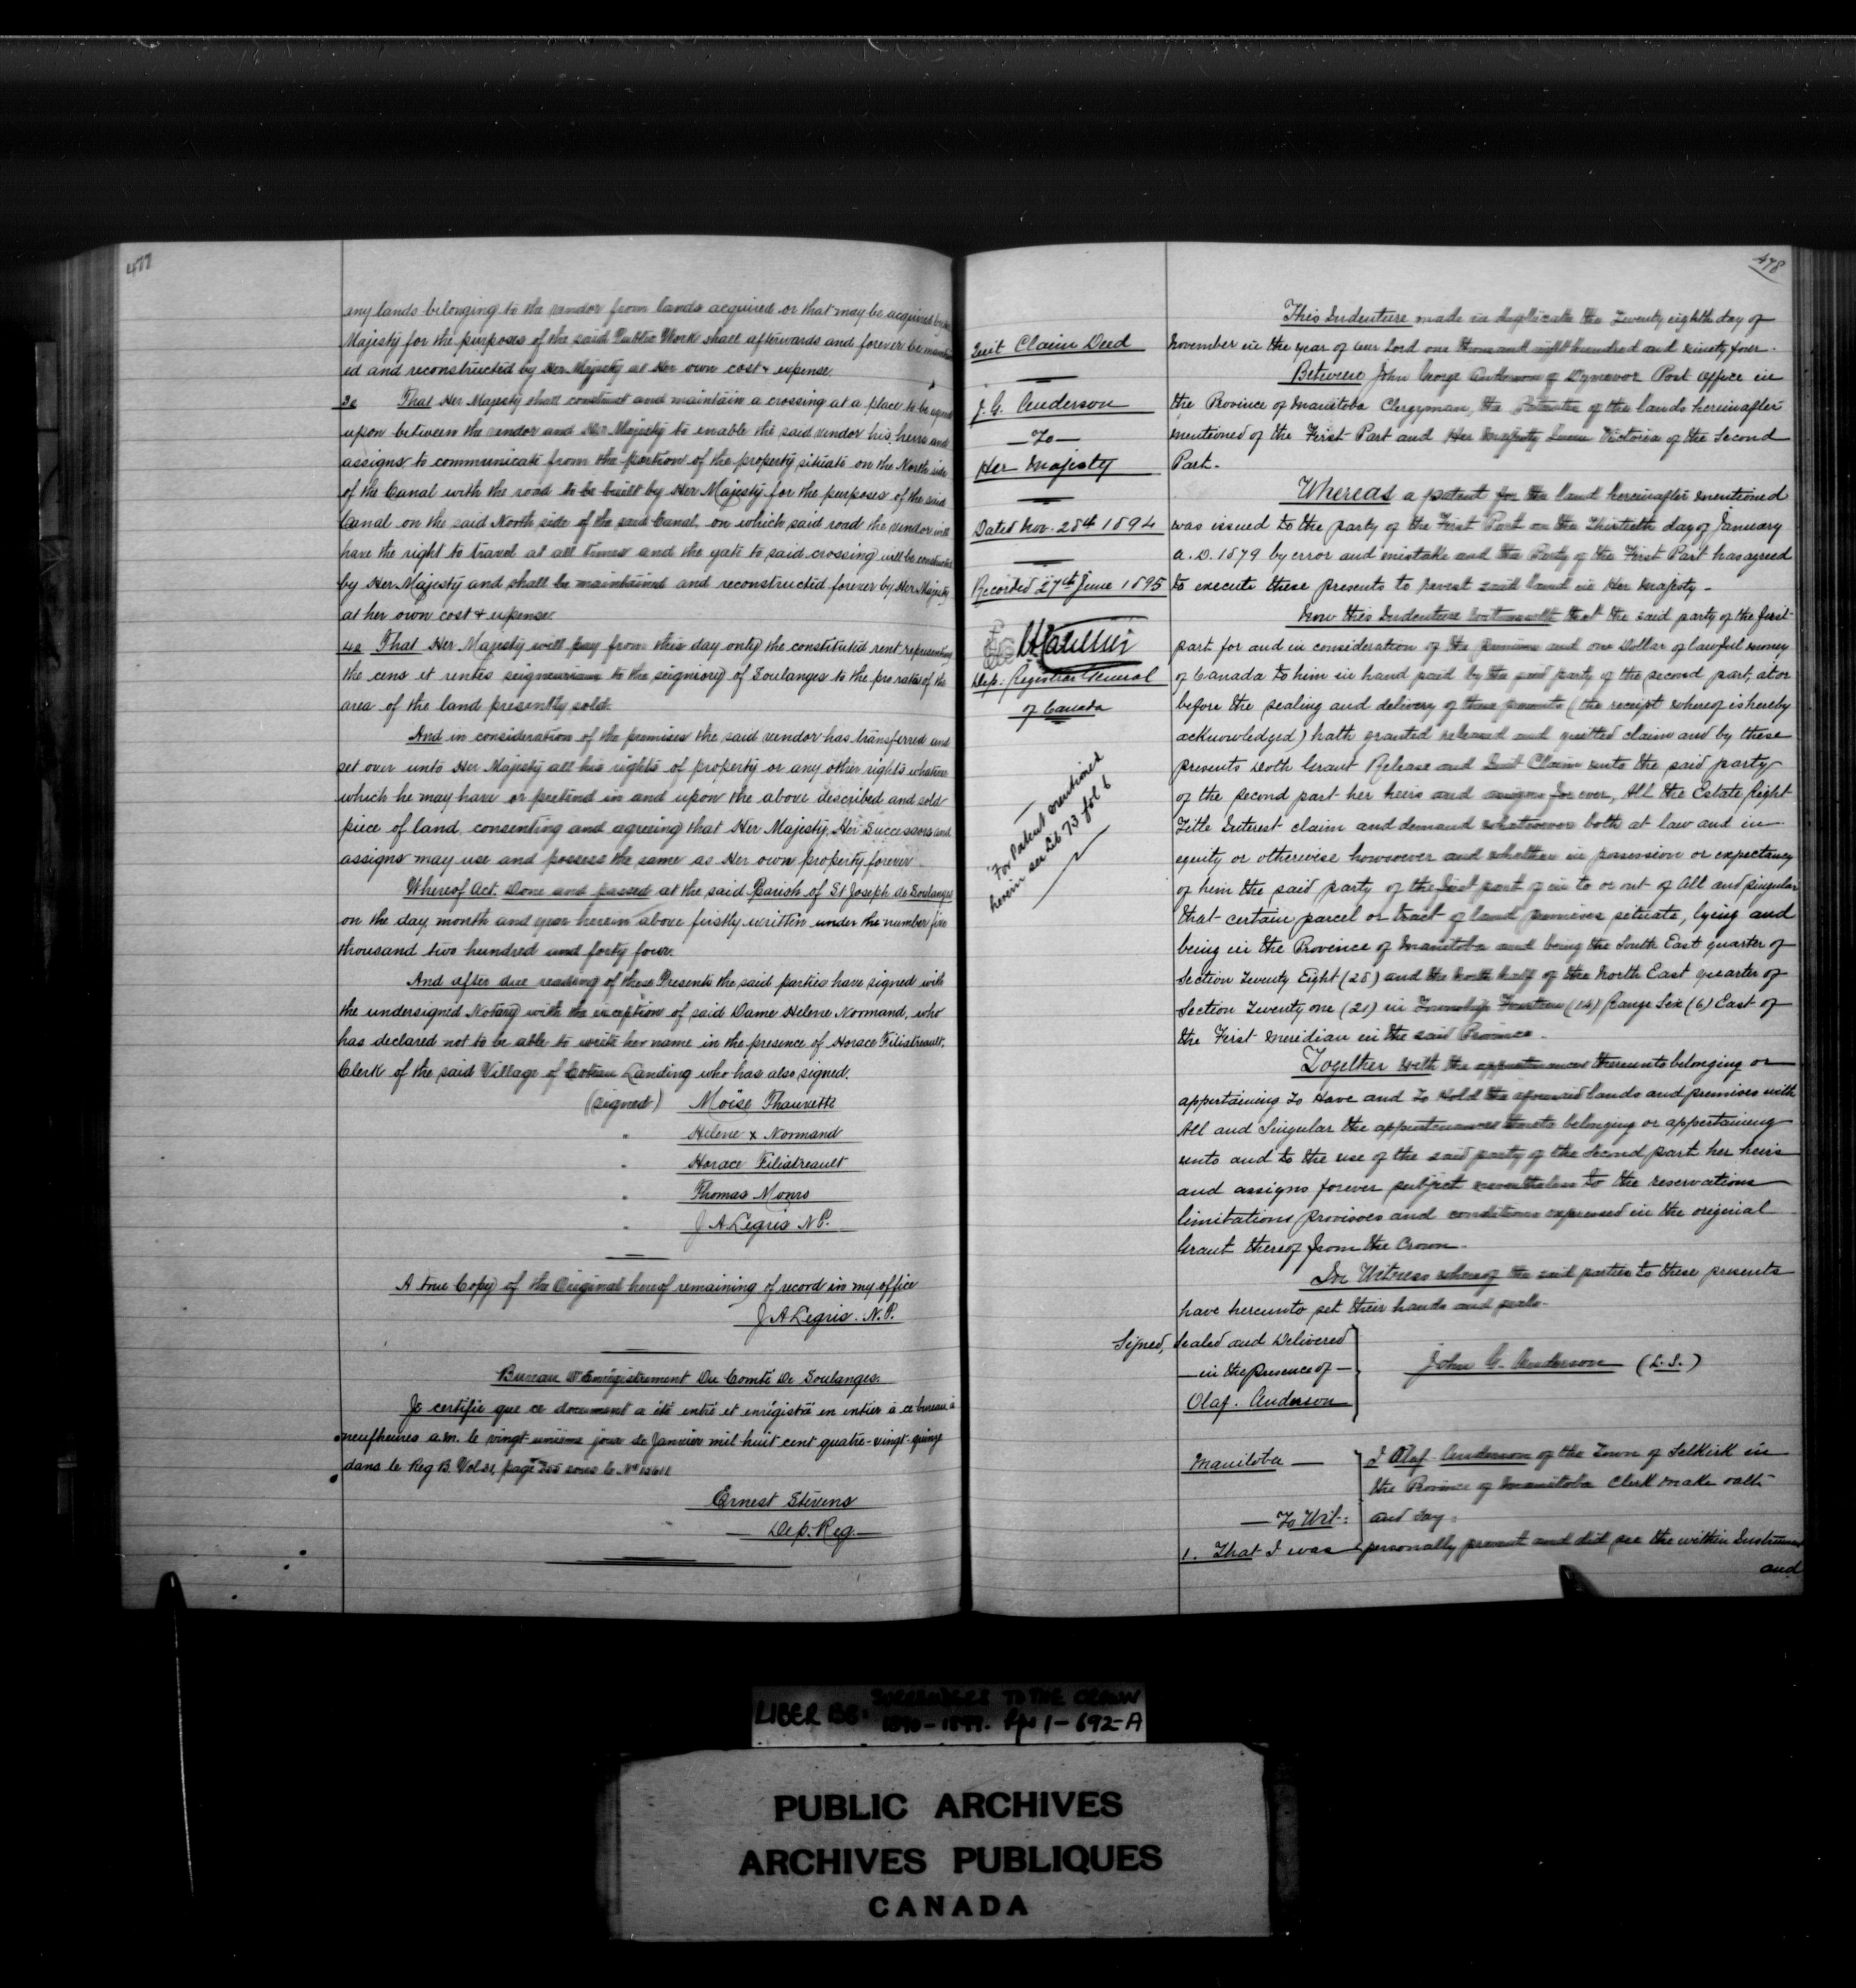 477
any lands belonging to the vendor from lands acquired or that may be acquired by Her
Majesty for the purposes of the said Public Work shall afterwards and forever be maintain
ed and reconstructed by Her Majesty at Her own cost & expense.
3o That Her Majesty shall construct and maintain a crossing at a place to be agreed
upon between the vendor and Her Majesty to enable the said vendor his heirs and
assigns to communicate from the portion of the property situate on the North side
of the Canal with the road to be built by Her Majesty for the purposes of the said
Canal on the said North side of the said Canal, on which said road the vendor will
have the right to travel at all times and the gate to said crossing will be constructed
by Her Majesty and shall be maintained and reconstructed forever by Her Majesty
at her own cost & expense.
4o That Her Majesty will pay from this day only the constituted rent representing
the cens et rentes seigneuriaux to the seigniory of Soulanges to the pro rata of the
area of the land presently sold.
And in consideration of the premises the said vendor has transferred and
set over unto Her Majesty all his rights of property or any other rights whatever
which he may have or pretend in and upon the above described and sold
piece of land, consenting and agreeing that Her Majesty, Her Successors and
assigns may use and possess the same as Her own property forever
Whereof Act. Done and passed at the said Parish of St Joseph de Soulanges
on the day, month and year herein above firstly written under the number five
thousand two hundred and forty four.
And after due reading of these Presents the said parties have signed with
the undersigned Notary with the exception of said Dame Helene Normand, who
has declared not to be able to write her name in the presence of Horace Filiatreault,
Clerk of the said Village of Coteau Landing who has also signed.
(signed) Moïse Thauvette
" Helene x Normand
" Horace Filiatreault
" Thomas Monro
" J A Legris N.P.
A true Copy of the Original hereof remaining of record in my office
J A Legris. N.P.
Bureau D'Enrégistrement Du Comté De Soulanges.
Je certifie que ce document a été entré et enrégistré en entier à ce bureau à
neuf heures a.m. le vingt-unième jour de Janvier mil huit cent quatre-vingt-quinze
dans le Reg B. Vol 31, page sous le No
Ernest Stevens
Dep. Reg.
478
Quit Claim Deed
J. G. Anderson
To
Her Majesty
Dated Nov. 28th 1894
Recorded 27th June 1895
Dep: Registrar General
of Canada
For Patent mentioned
herein see Lib 73 fol 6
This Indenture made in duplicate the Twenty eighth day of
November in the year of Our Lord one thousand eight hundred and ninety four.
Between John George Anderson of Dynevor Post Office in
the Province of Manitoba Clergyman, the Patentee of the lands hereinafter
mentioned of the First Part and Her Majesty Queen Victoria of the Second
Part.
Whereas a patent for the land hereinafter mentioned
was issued to the party of the First Part on the Thirtieth day of January
A.D. 1879 by error and mistake and the Party of the First Part has agreed
to execute these presents to revest said land in Her Majesty.
Now this Indenture Witnesseth that the said party of the first
part for and in consideration of the premises and one Dollar of lawful money
of Canada to him in hand paid by the said party of the second part, at or
before the sealing and delivery of these presents (the receipt whereof is hereby
acknowledged) hath granted released and quitted claim and by these
presents Doth Grant Release and Quit Claim unto the said party
of the second part her heirs and assigns for ever, All the Estate Right
Title Interest claim and demand whatsoever both at law and in
equity or otherwise howsoever and whether in possession or expectancy
of him the said party of the first part of in to or out of All and Singular
that certain parcel or tract of land premises situate, lying and
being in the Province of Manitoba and being the South East quarter of
Section Twenty Eight (28) and the North half of the North East quarter of
Section Twenty one (21) in Township Fourteen (14) Range Six (6) East of
the First Meridian in the said Province.
Together with the appurtenances thereunto belonging or
appertaining To Have and To Hold the aforesaid lands and premises with
All and Singular the appurtenances thereto belonging or appertaining
unto and to the use of the said party of the Second part her heirs
and assigns forever subject nevertheless to the reservations
limitations, provisoes and conditions expressed in the original
Grant thereof from the Crown.
In Witness whereof the said parties to these presents
have hereunto set their hands and seals.
Signed, Sealed and Delivered
in the presence of
Olaf. Anderson
John G. Anderson (L.S.)
Manitoba
To Wit:
I Olaf Anderson of the Town of Selkirk in
the Province of Manitoba Clerk make oath
and say:
1. That I was personally present and did see the within Instrument
and
LIBER BB: SURRENDERS TO THE CROWN
1890-1899. Pp 1-692-A
PUBLIC ARCHIVES
ARCHIVES PUBLIQUES
CANADA